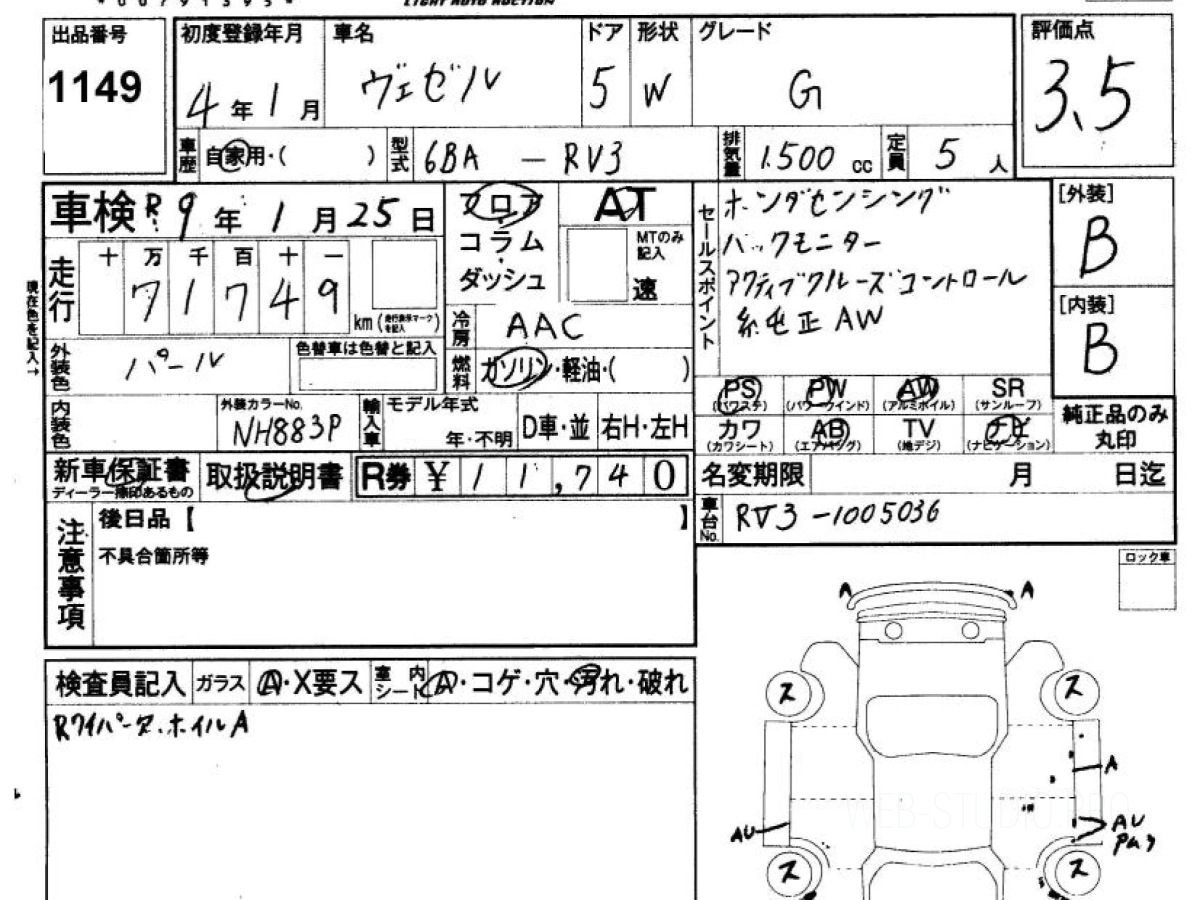 LIGHT AUTO AUCTION
出品番号
1149
初度登録年月
4年1月
車名
ヴェゼル
ドア
5
形状
W
グレード
G
評価点
3.5
車歴
自家用・( )
型式
6BA - RV3
排気量
1.500 cc
定員
5人
車検 R9年1月25日
フロア・コラム・ダッシュ
AT
MTのみ記入
速
セールスポイント
ホンダセンシング
バックモニター
アクティブクルーズコントロール
純正AW
[外装]
B
[内装]
B
現在色を記入→
走行
十 万 千 百 十 一
7 1 7 4 9
km (走行表示マークを記入)
冷房
AAC
燃料
ガソリン・軽油・( )
外装色
パール
色替車は色替と記入
内装色
外装カラーNo.
NH883P
輸入車
モデル年式
年・不明
D車・並
右H・左H
PS
(パワステ)
PW
(パワーウインド)
AW
(アルミホイル)
SR
(サンルーフ)
カワ
(カワシート)
AB
(エアバッグ)
TV
(地デジ)
ナビ
(ナビゲーション)
純正品のみ丸印
新車保証書
ディーラー捺印あるもの
取扱説明書
R券 ¥ 11,740
名変期限 月 日迄
車台No.
RV3-1005036
注意事項
後日品【 】
不具合箇所等
ロック車
検査員記入
ガラス
A・X要ス
室内シート
A・コゲ・穴・汚れ・破れ
Rワイパーヌ・ホイルA
A
A
ス
ス
A
AU
AU
ス
ス
WEB-STUDIO PRO